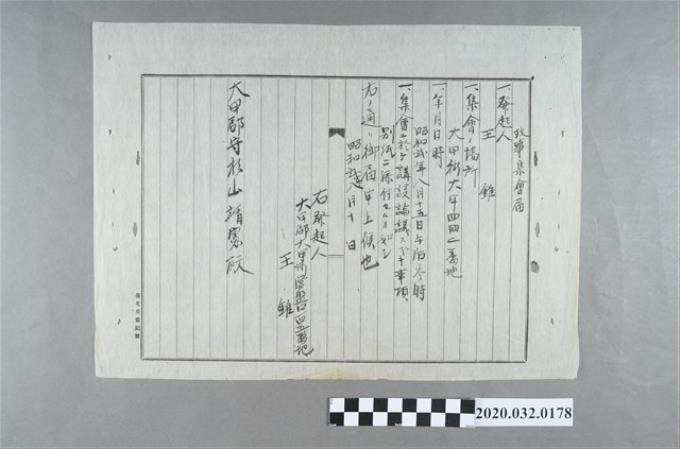 政事集會届
一、發起人
王 錐
一、集會ノ場所
大甲街大甲四四二番地
一、年月日時
昭和弍年八月十五日午后参時
一、集會ニ於テ講談論議スベキ事項
別紙ニ添付セル如シ
右ノ通リ御届申上候也
昭和弍年八月十 日
右發起人
大甲郡大甲街
王 錐
大甲郡守杉山靖憲殿
2020.032.0178